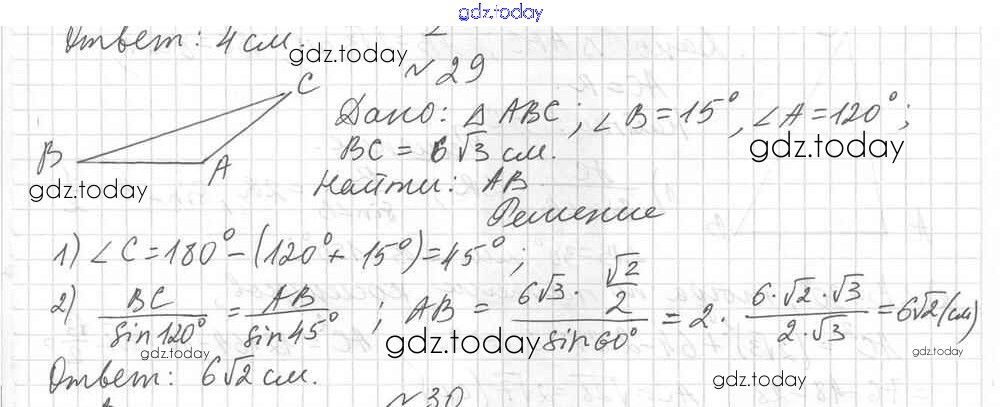 gdz.today
Ответ: 4 см.
gdz.today
№ 29
C
B
A
Дано: △ ABC; ∠B=15°, ∠A=120°;
gdz.today
BC = 6√3 см.
gdz.today
Найти: AB
Решение
1) ∠C=180°-(120°+15°)=45°;
2) BC/sin120° = AB/sin45°; AB = (6√3 · √2/2)/sin60° = 2 · (6·√2·√3)/(2·√3) = 6√2 (см)
gdz.today
gdz.today
gdz.today
Ответ: 6√2 см.
gdz.today
№ 30